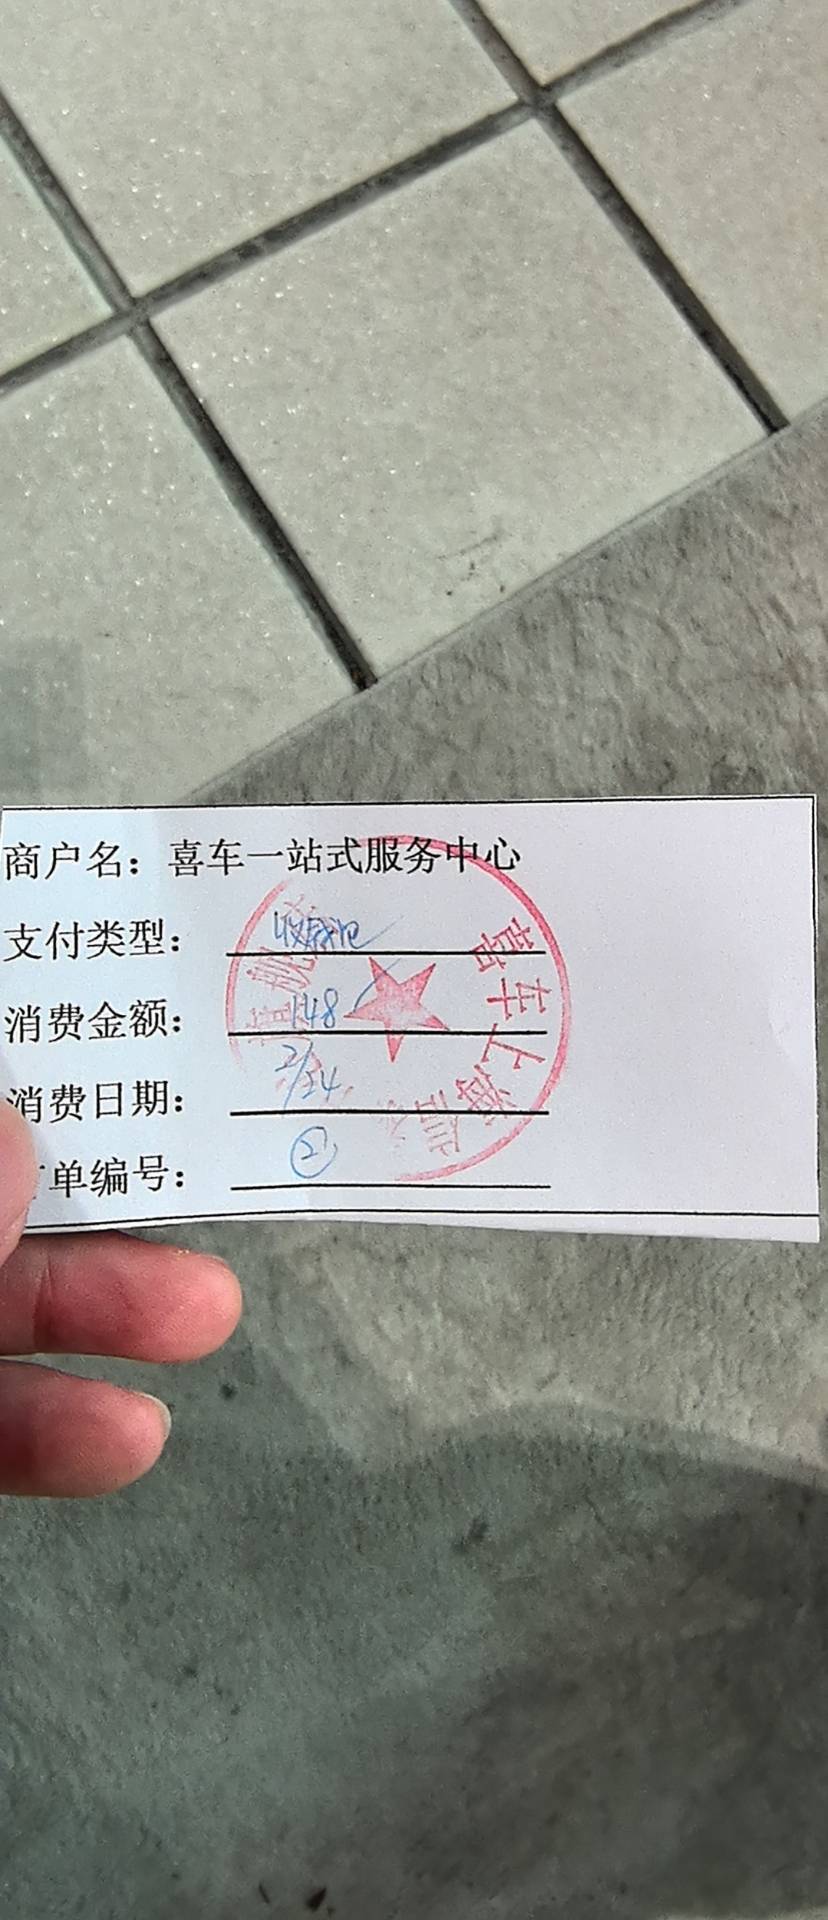 商户名：喜车一站式服务中心
支付类型：收钱吧
消费金额：148
消费日期：2/24
单编号：②
喜车上海
旗舰